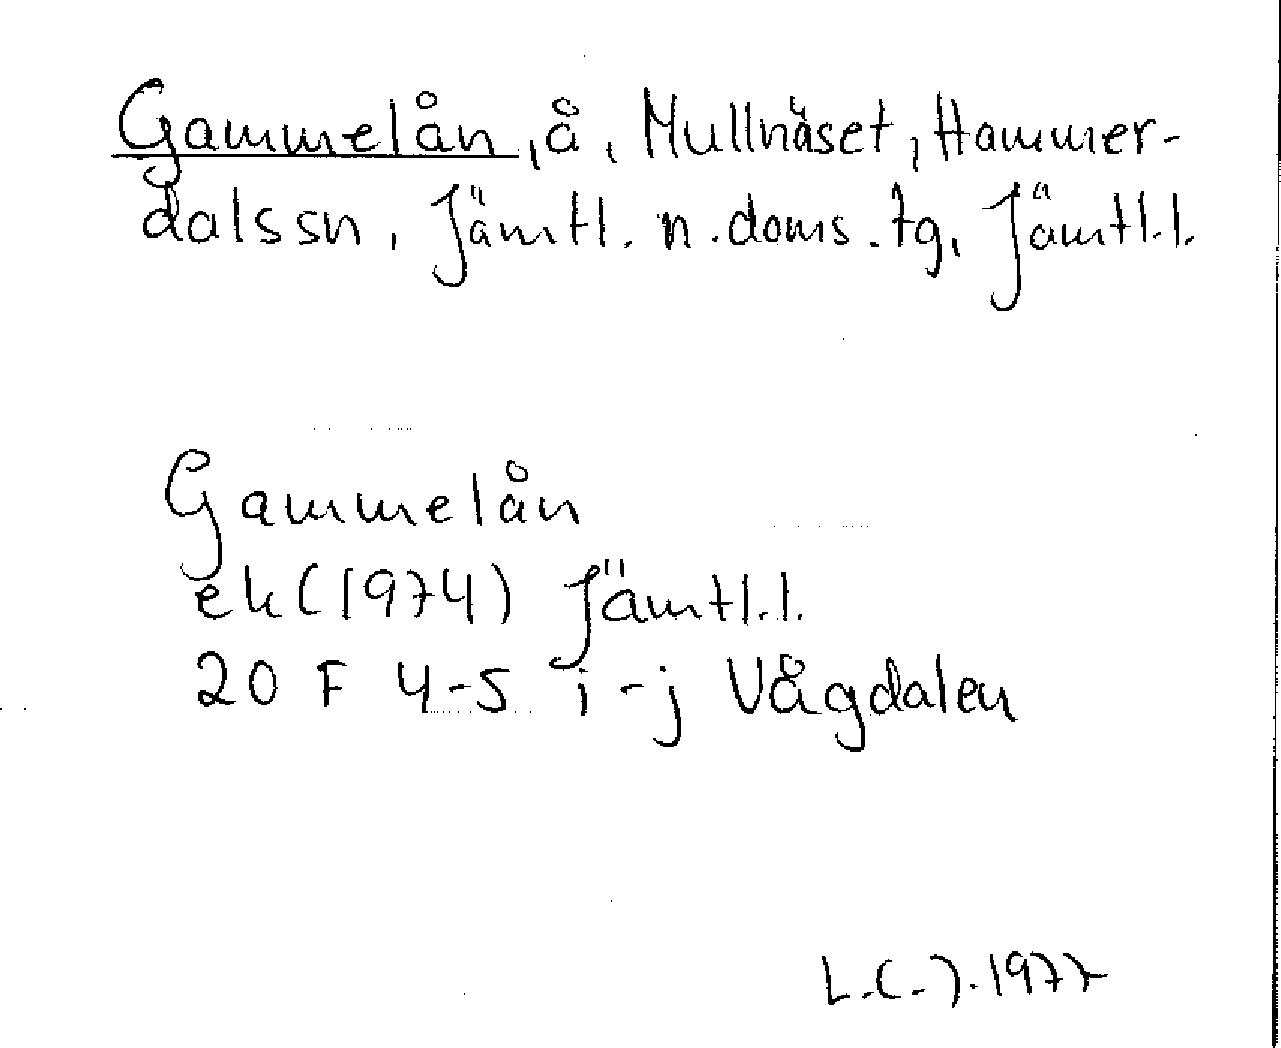 Gammelån, å, Mullnäset, Hammer-
dals sn, Jämtl. n. doms. tg, Jämtl. l.
Gammelån
ek (1974) Jämtl. l.
20 F 4-5 i-j Vågdalen
L.C-J. 1977